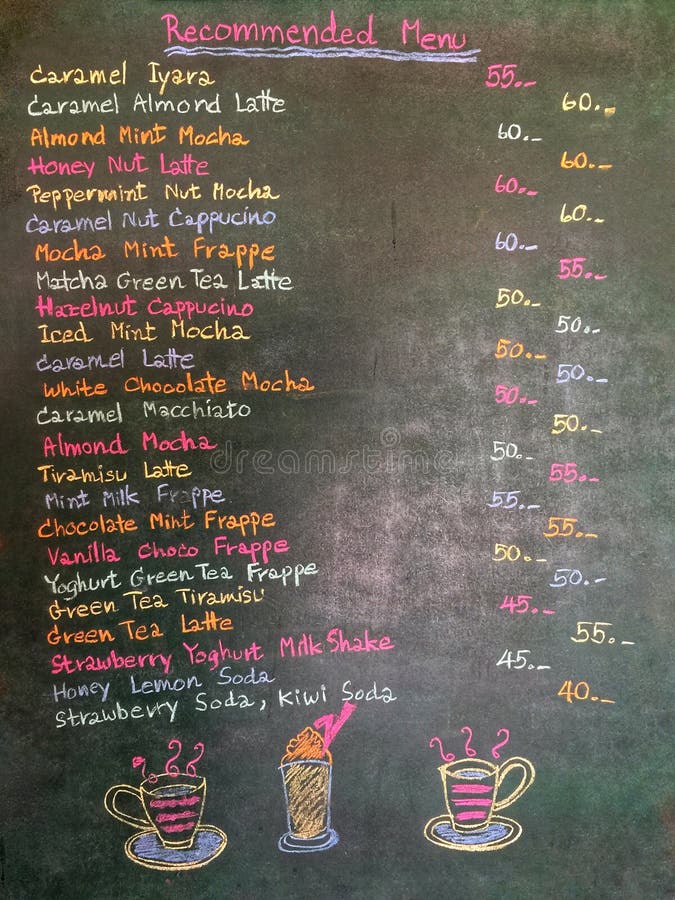 Recommended Menu
Caramel Iyara 55.-
Caramel Almond Latte 60.-
Almond Mint Mocha 60.-
Honey Nut Latte 60.-
Peppermint Nut Mocha 60.-
Caramel Nut Cappucino 60.-
Mocha Mint Frappe 60.-
Matcha Green Tea Latte 55.-
Hazelnut Cappucino 50.-
Iced Mint Mocha 50.-
Caramel Latte 50.-
White Chocolate Mocha 50.-
Caramel Macchiato 50.-
Almond Mocha 50.-
Tiramisu Latte 50.-
Mint Milk Frappe 55.-
Chocolate Mint Frappe 55.-
Vanilla Choco Frappe 55.-
Yoghurt Green Tea Frappe 50.-
Green Tea Tiramisu 50.-
Green Tea Latte 45.-
Strawberry Yoghurt Milk Shake 55.-
Honey Lemon Soda 45.-
Strawberry Soda, Kiwi Soda 40.-
dreamstime.com